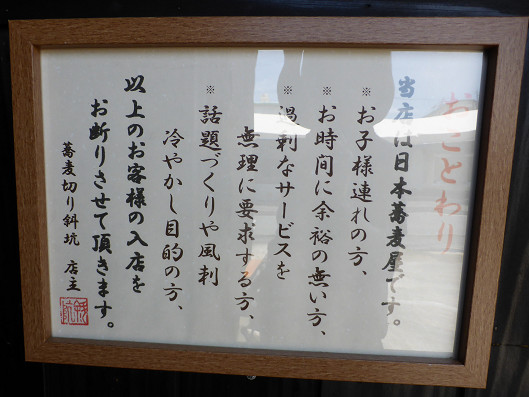 おことわり
当店は日本蕎麦屋です。
※お子様連れの方、
※お時間に余裕の無い方、
※過剰なサービスを
無理に要求する方、
※話題づくりや風刺
冷やかし目的の方、
以上のお客様の入店を
お断りさせて頂きます。
蕎麦切り斜坑 店主